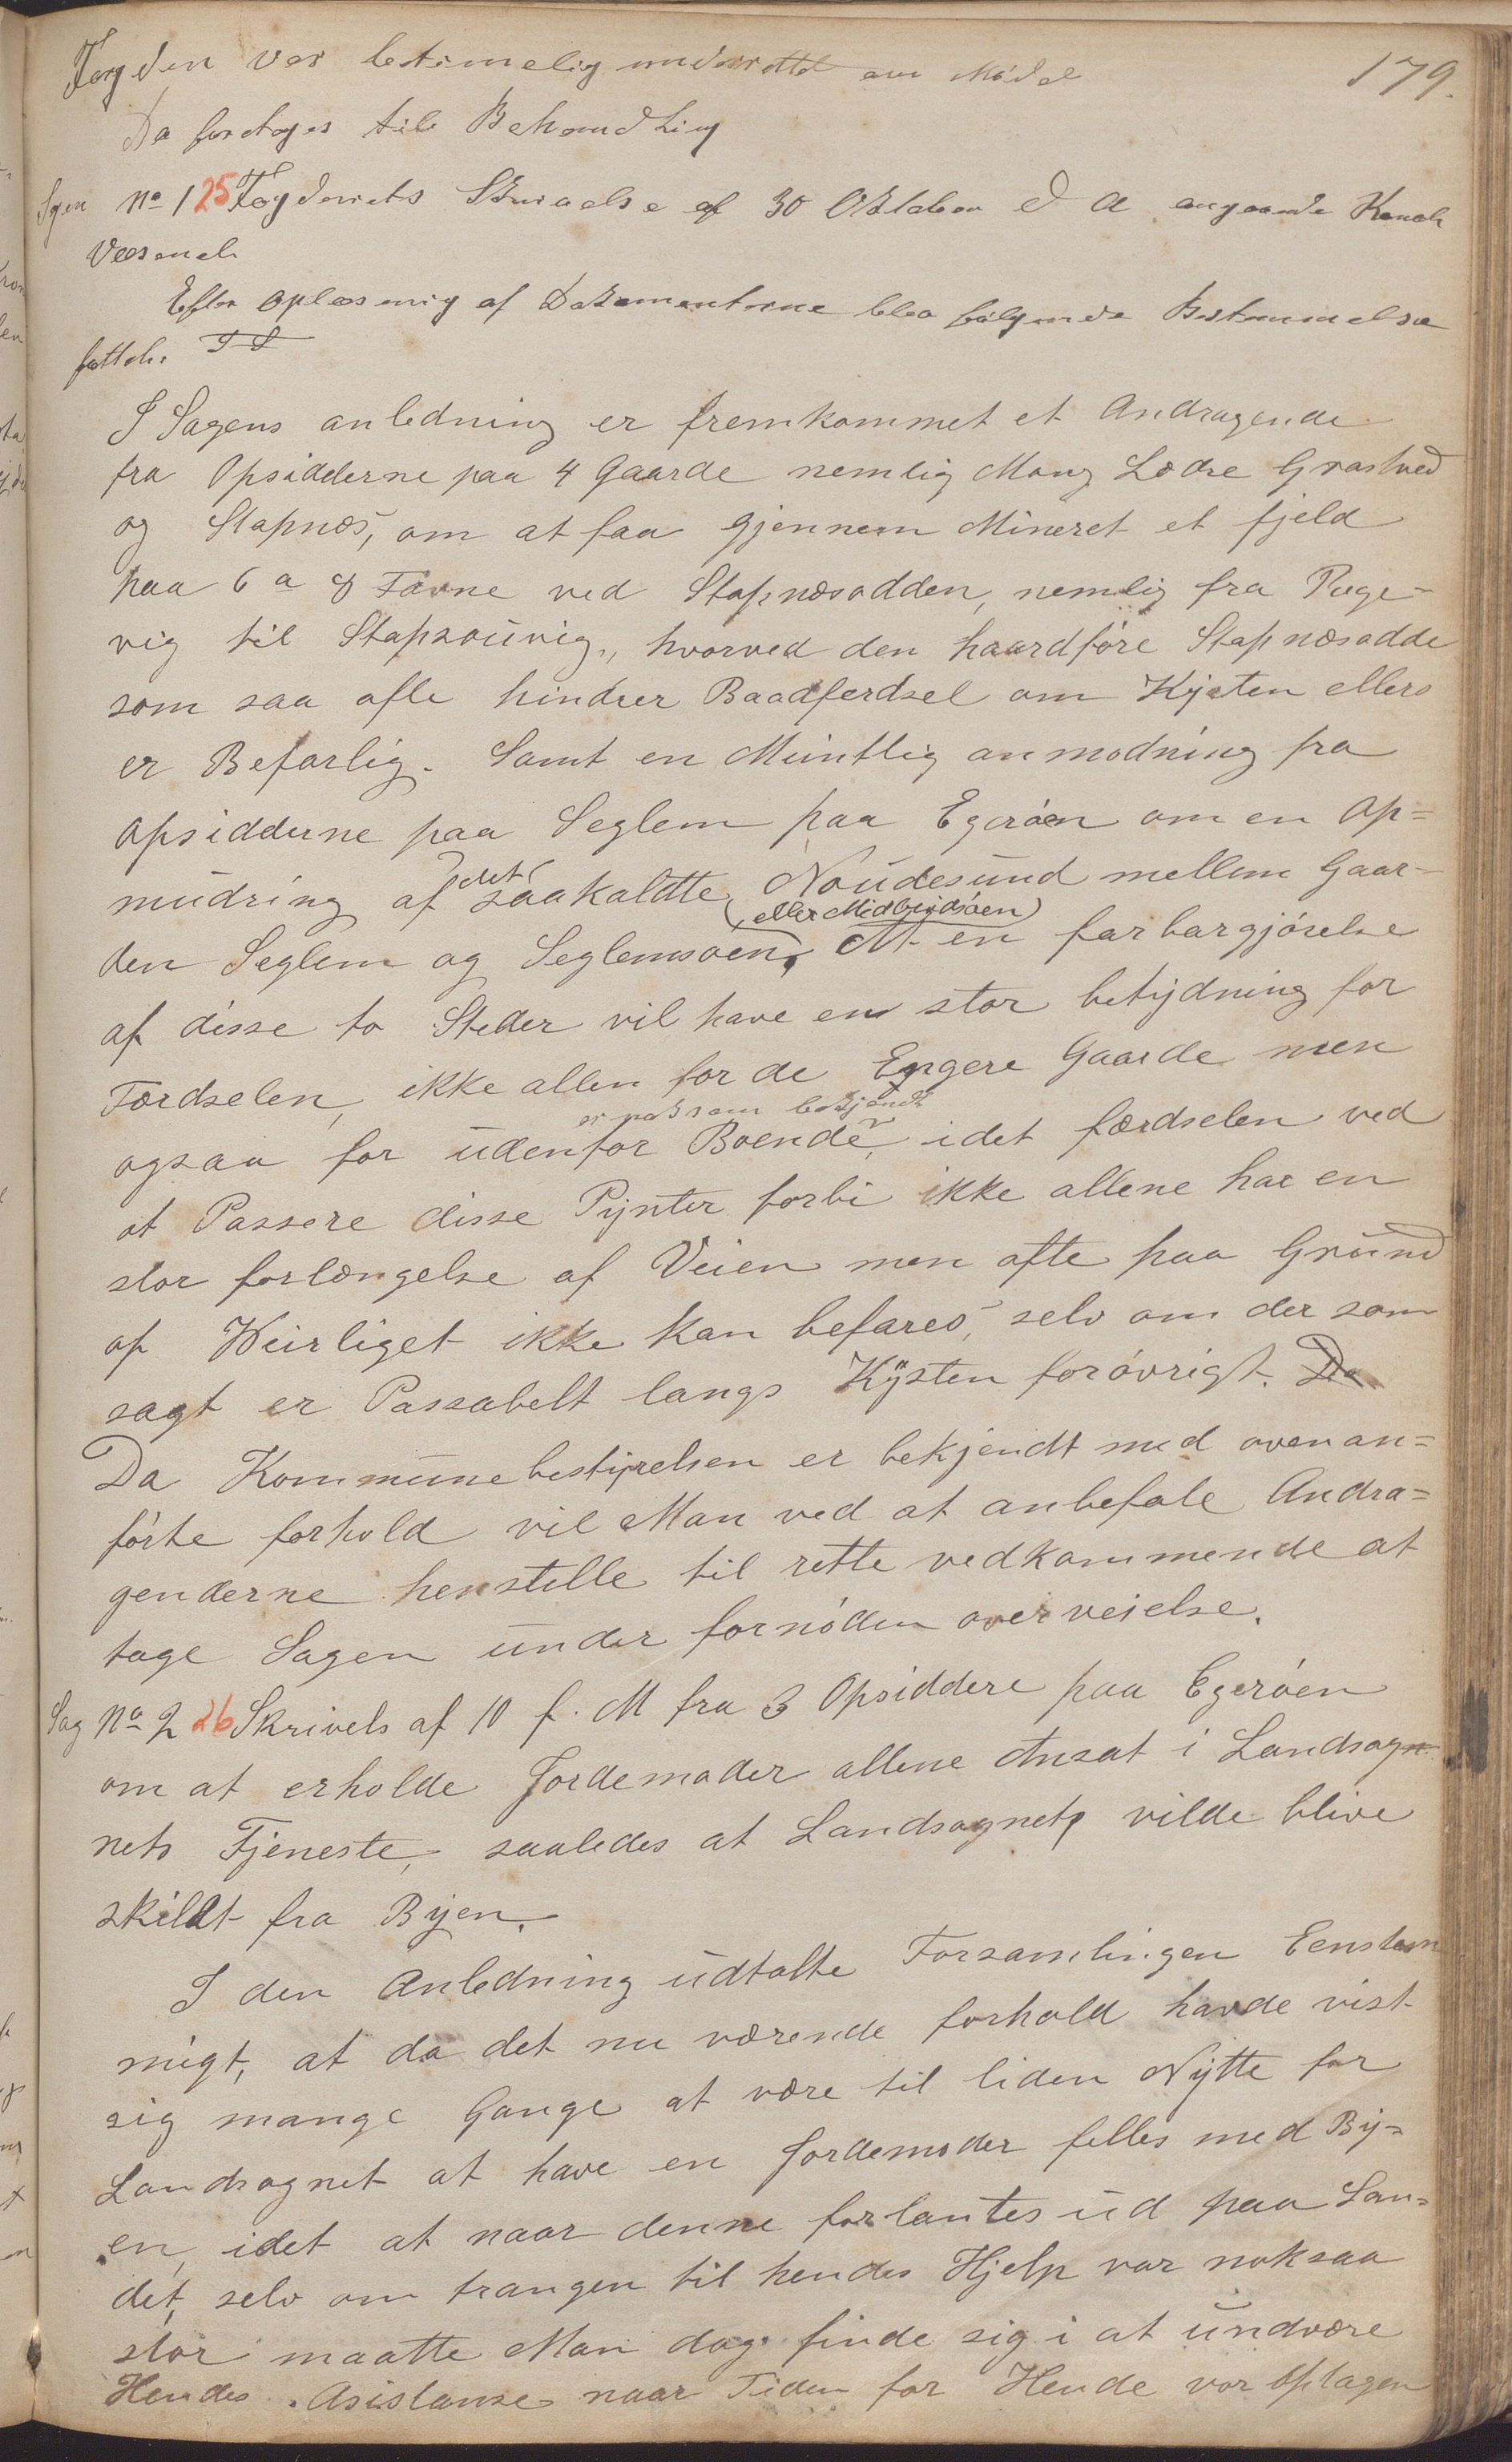 179.
Fogden var betimelig underrettet om Mødet
Da foretoges till Behandling
Sgen No 1 25 Fogderiets Skrivelse af 30 Oktober d A angaaende Kanal
Væsenet
Efter Oplæsning af Dokumenterne blev følgende Bestemmelse
fattet.
I Sagens anledning er fremkommet et Andragende
fra Opsidderne paa 4 Gaarde nemlig Mong Lædre Grastved
og Stapnæs, om at faa gjennem Mineret et fjeld
paa 6 a 8 Favne ved Stapnæsodden, nemlig fra Puge-
vig til Stapsouvig, hvorved den haardføre Stapnæsodde
som saa ofte hindrer Baadferdsel om Kysten ellers
er Befarlig. Samt en Muntlig anmodning fra
Opsidderne paa Seglem paa Egerøen om en Op=
mudring af det saakaldte Noudesund mellem Gaar-
(eller Midbrødsøen)
den Seglem og Seglemsøen. At en farbargjørelse
af disse to Steder vil have en stor betydning for
Færdselen, ikke allen for de Engere Gaarde men
er noksom bekjendt
ogsaa for udenfor Boende, idet færdselen ved
at Passere disse Pynter forbi ikke allene har en
stor forlængelse af Veien men ofte paa Grund
af Weirliget ikke kan befares, selv om der som
sagt er Passabelt langs Kysten forøvrigt. Da
Da Kommunebestyrelsen er bekjendt med ovenan=
førte forhold vil Man ved at anbefale Andra=
genderne henstille til rette vedkommende at
tage Sagen under fornøden overveielse.
Sag No 2 26 Skrivels af 10 f. M fra 3 Opsiddere paa Egerøen
om at erholde Jordemoder allene Ansat i Landsog
nets Tjeneste, saaledes at Landsognet vilde blive
skildt fra Byen.
I den Anledning udtalte Forsamlingen Eenstem
migt, at da det nu værende forhold havde vist
sig mange Gange at være til liden Nytte for
Landsognet at have en Jordemoder felles med By=
en, idet at naar denne forlantes ud paa Lan=
det, selv om trangen til hendes Hjelp var noksaa
stor maatte Man dog finde sig i at undvære
Hendes Asistanse naar Tiden for Hende var Optagen